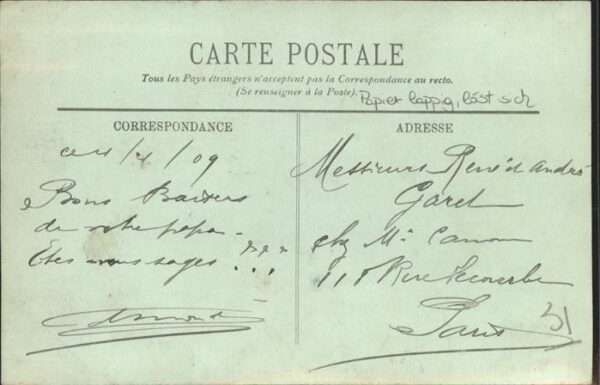 CARTE POSTALE
Tous les Pays étrangers n'acceptent pas la Correspondance au recto.
(Se renseigner à la Poste).
Papier lappig, löst sich
CORRESPONDANCE
ADRESSE
ce 4/4/09
Bons Baisers
de votre papa.
Etes vous sages ???
Messieurs René et André
Garel
chez Mr
Rue Lecourbe
Paris
51